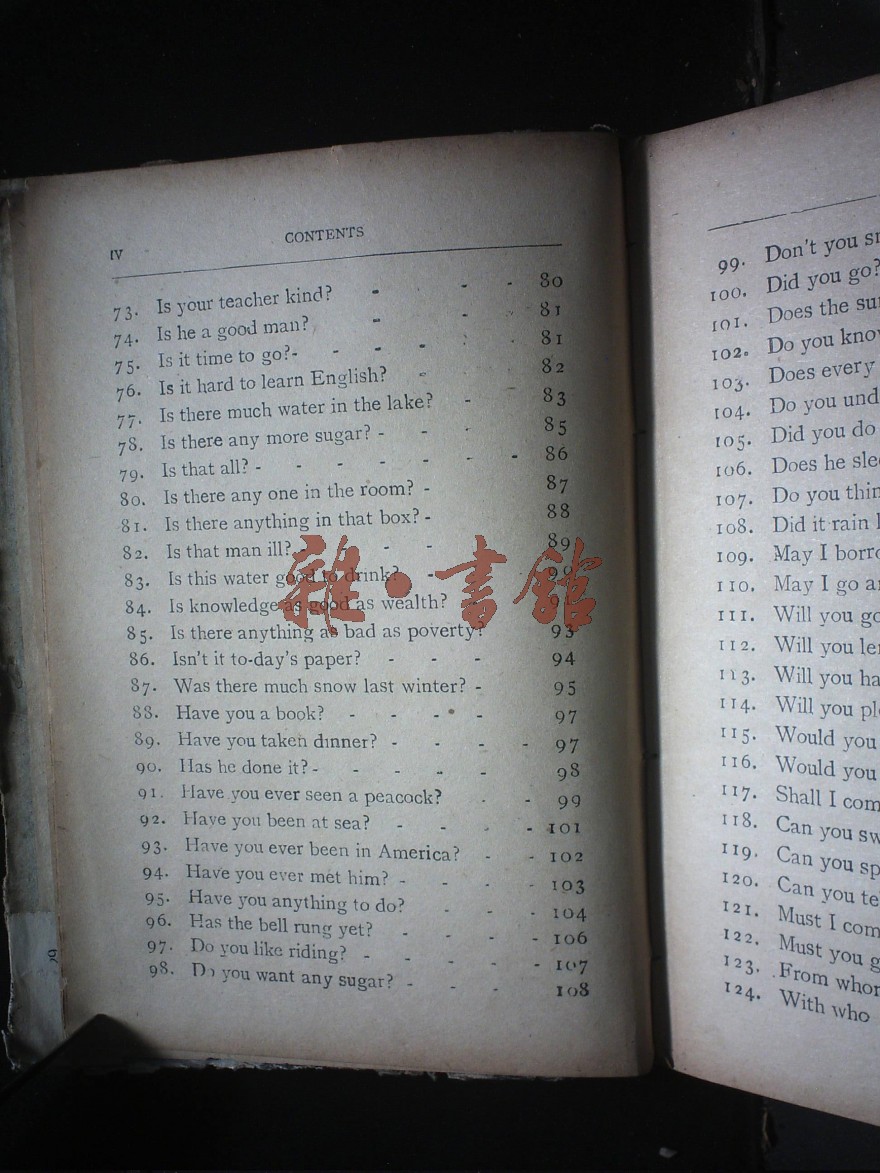 IV
CONTENTS
73. Is your teacher kind? - - - 80
74. Is he a good man? - - - 81
75. Is it time to go?- - - - - 81
76. Is it hard to learn English? - 82
77. Is there much water in the lake? - 83
78. Is there any more sugar? - - - 85
79. Is that all? - - - - - - - 86
80. Is there any one in the room? - 87
81. Is there anything in that box? - 88
82. Is that man ill? - - - - 89
83. Is this water good to drink? -
84. Is knowledge as good as wealth? -
85. Is there anything as bad as poverty? 93
86. Isn't it to-day's paper? - - - 94
87. Was there much snow last winter? - 95
88. Have you a book? - - - - - 97
89. Have you taken dinner? - - - - 97
90. Has he done it? - - - - - 98
91. Have you ever seen a peacock? - - 99
92. Have you been at sea? - - - - 101
93. Have you ever been in America? - - 102
94. Have you ever met him? - - - - 103
95. Have you anything to do? - - - 104
96. Has the bell rung yet? - - - - 106
97. Do you like riding? - - - - - 107
98. Do you want any sugar? - - - 108
雜·書館
99. Don't you
100. Did you go?
101. Does the
102. Do you
103. Does every
104. Do you
105. Did you do
106. Does he
107. Do you
108. Did it rain
109. May I
110. May I go
111. Will you
112. Will you
113. Will you
114. Will you
115. Would you
116. Would you
117. Shall I
118. Can you
119. Can you
120. Can you
121. Must I
122. Must you
123. From
124. With